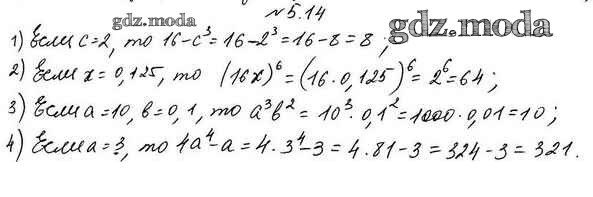 №5.14
gdz.moda
gdz.moda
1) Если c=2, то 16-c³=16-2³=16-8=8;
2) Если x=0,125, то (16x)⁶=(16·0,125)⁶=2⁶=64;
3) Если a=10, b=0,1, то a³b²=10³·0,1²=1000·0,01=10;
4) Если a=3, то 4a⁴-a=4·3⁴-3=4·81-3=324-3=321.